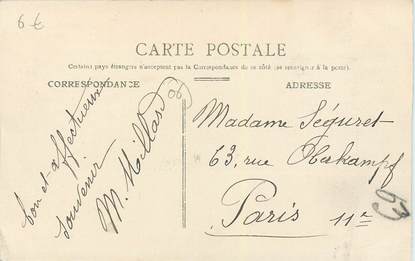 6 €
CARTE POSTALE
Certains pays étrangers n'acceptent pas la Correspondance de ce côté (se renseigner à la poste).
CORRESPONDANCE
ADRESSE
bon et affectueux
souvenir
M. Maillard
Madame Séguret
63, rue Oberkampf
Paris 11e
63